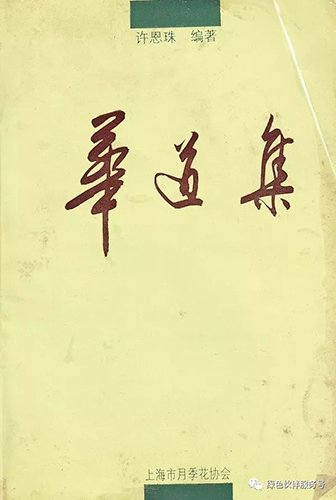 许恩珠 编著
華道集
上海市月季花协会
绿色伙伴服务号